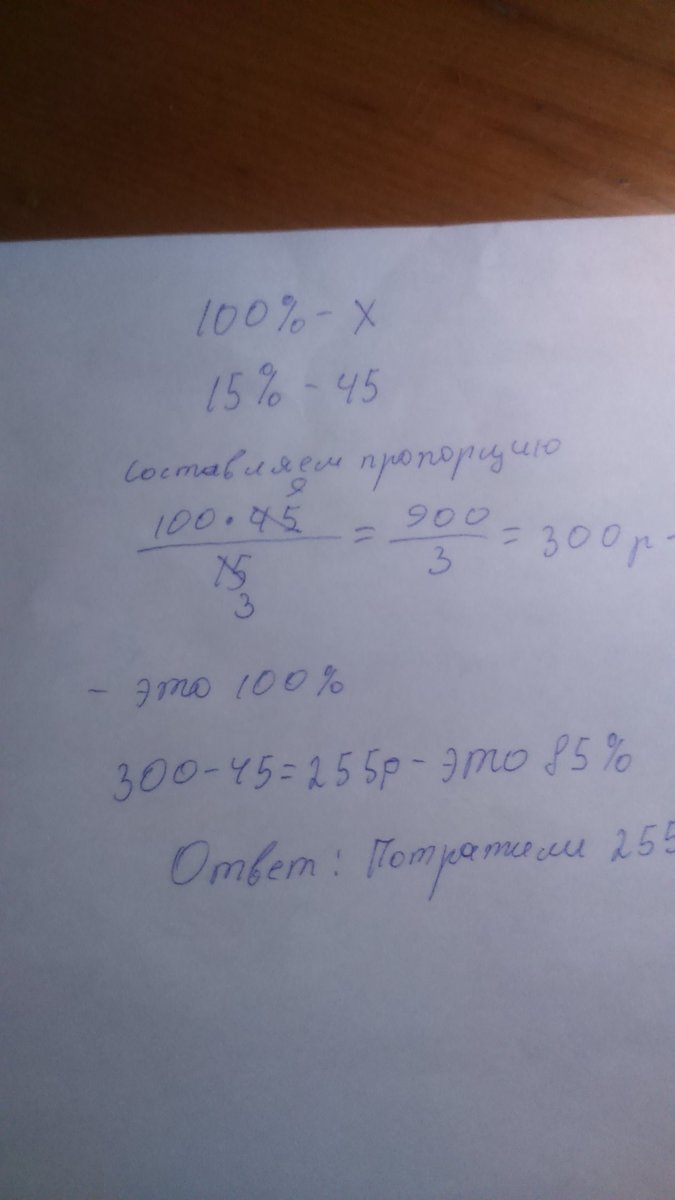 100% - x
15% - 45
Составляем пропорцию
9
100 · 45 / 15 = 900 / 3 = 300р -
3
- это 100%
300-45=255р - это 85%
Ответ: Потратили 255